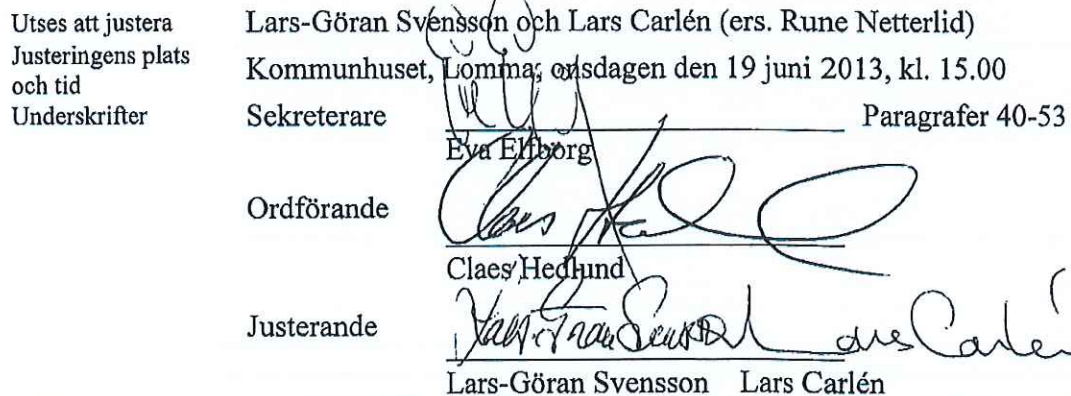 Utses att justera Lars-Göran Svensson och Lars Carlén (ers. Rune Netterlid)
Justeringens plats
och tid Kommunhuset, Lomma, onsdagen den 19 juni 2013, kl. 15.00
Underskrifter Sekreterare Paragrafer 40-53
Eva Elfborg
Ordförande Claes Hedlund
Claes Hedlund
Justerande Lars-Göran Svensson Lars Carlén
Lars-Göran Svensson Lars Carlén